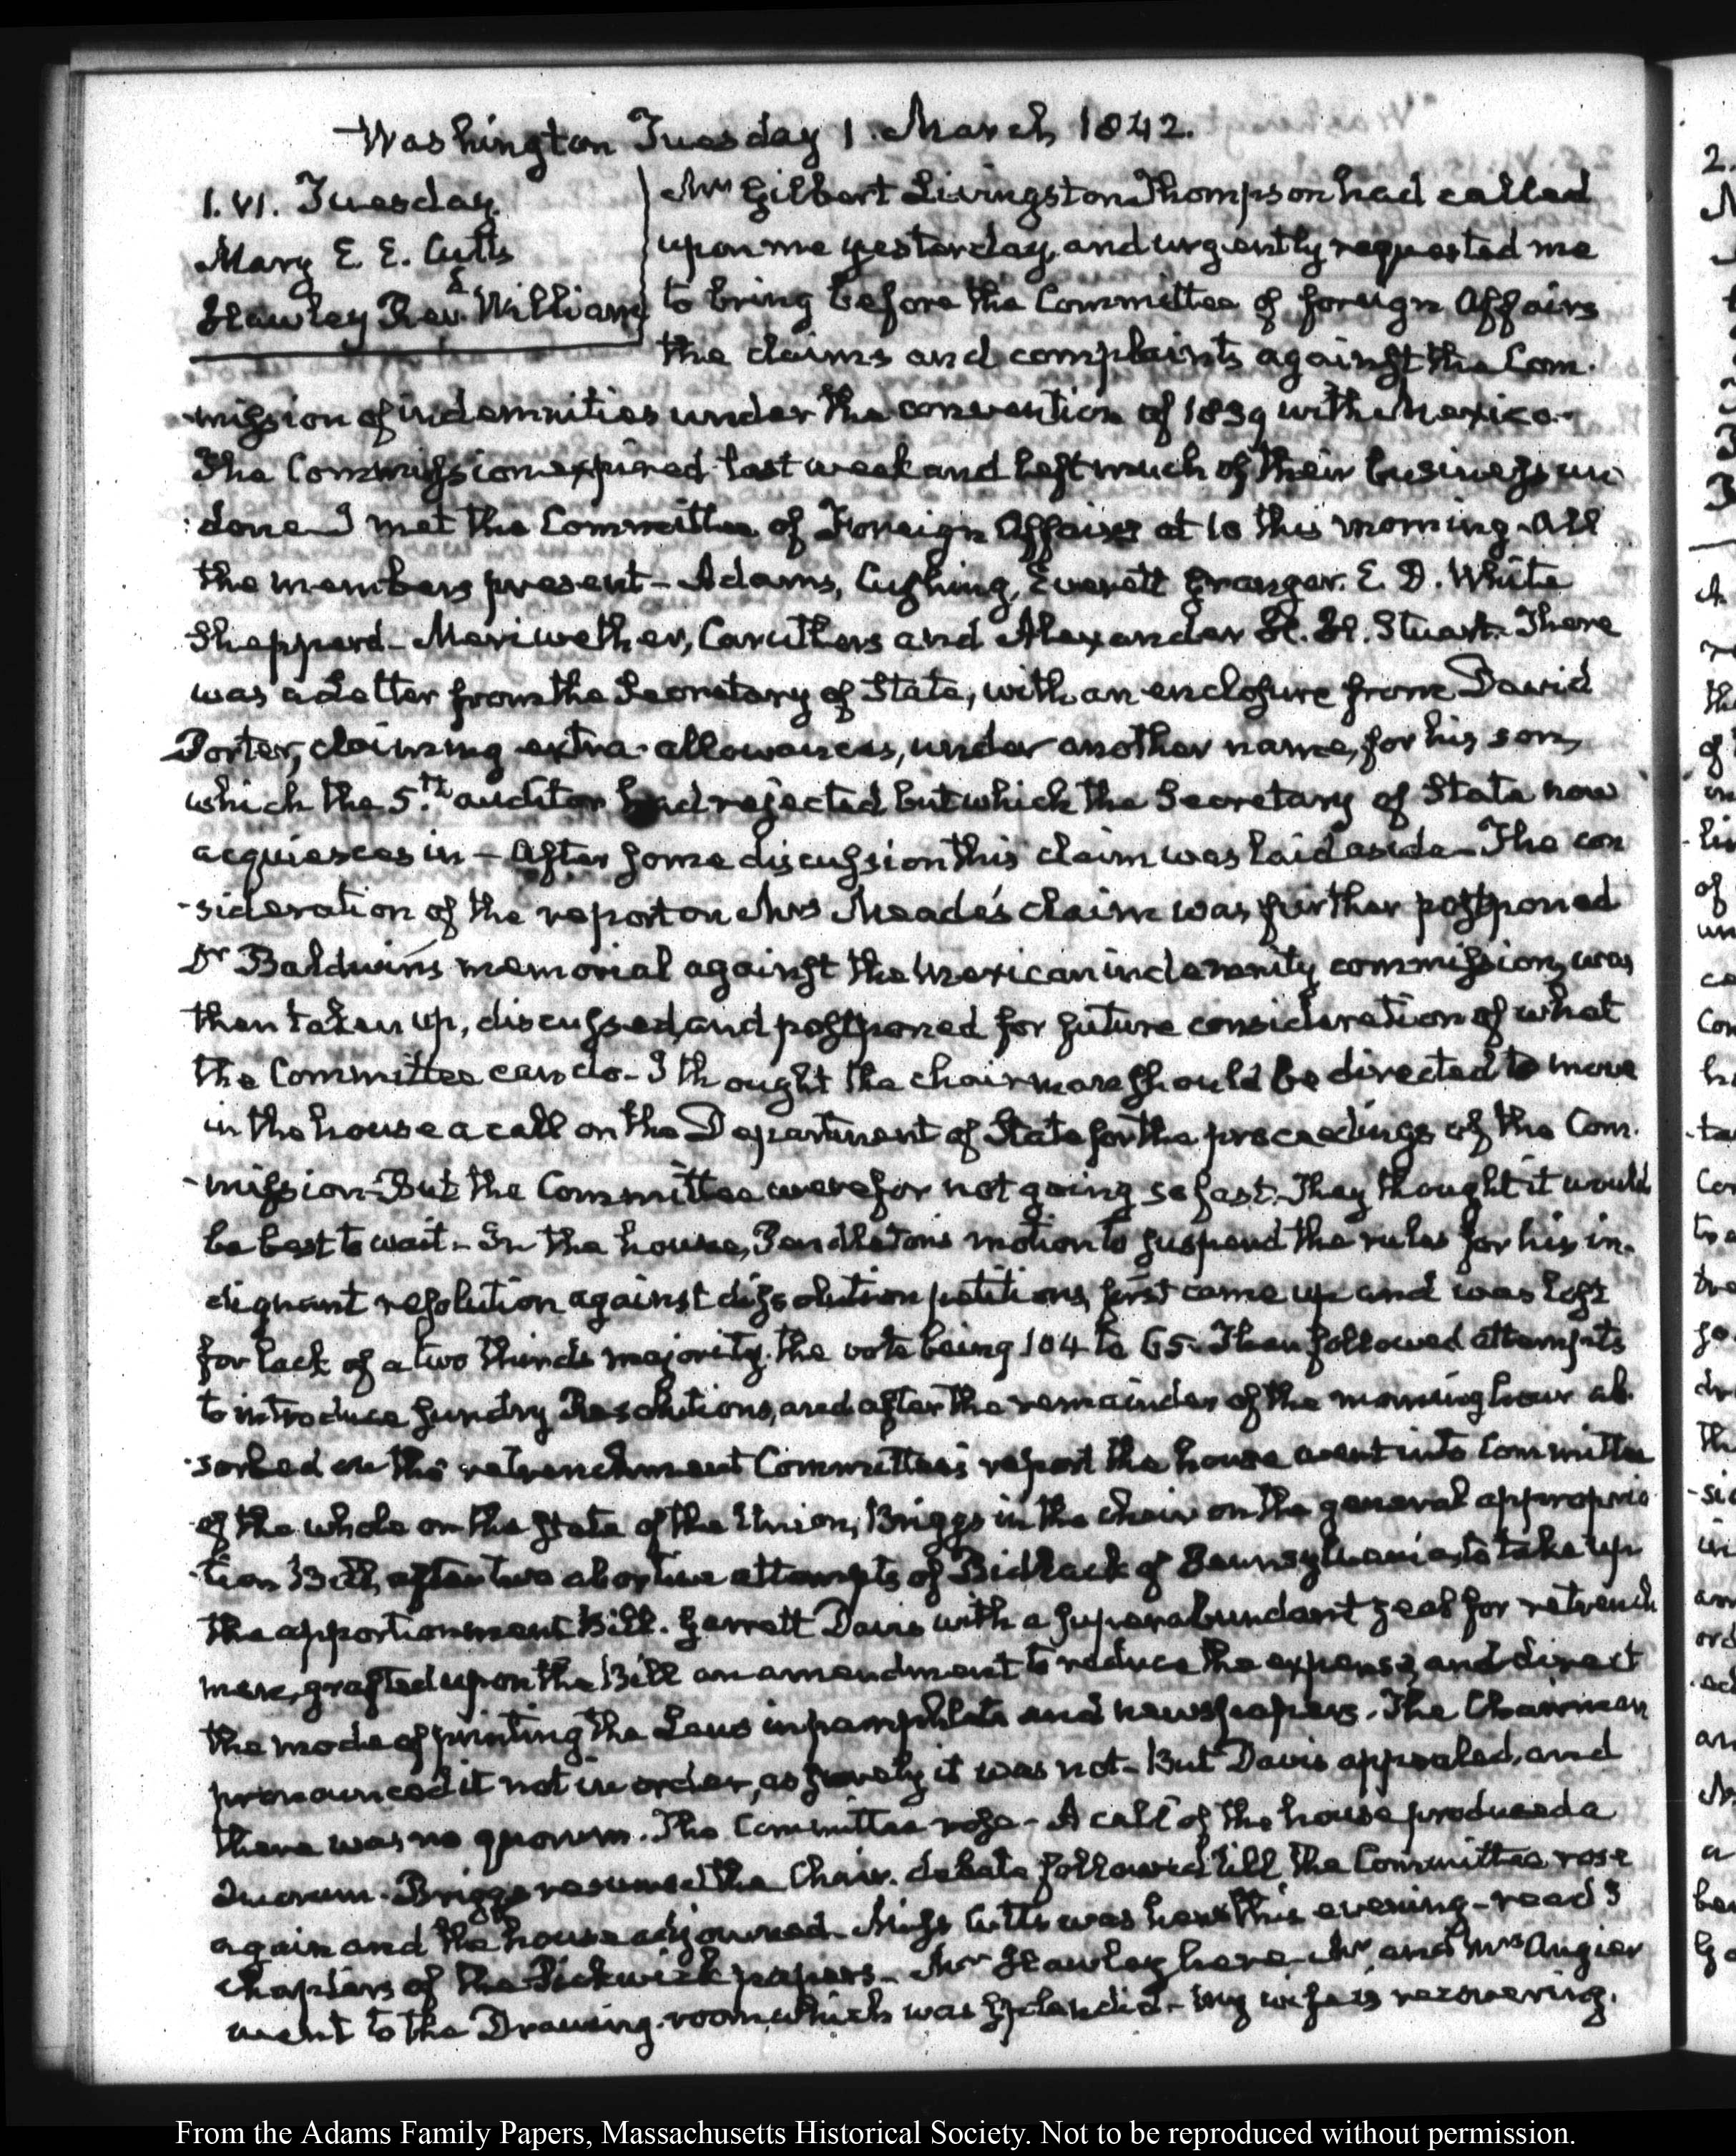 Washington Tuesday 1. March 1842.
1. VI. Tuesday.
Mary E. E. Cutts
Hawley Rev.d William
Mr Gilbert Livingston Thompson had called
upon me yesterday, and urgently requested me
to bring before the Committee of foreign Affairs
the claims and complaints against the Com-
-mission of indemnities under the convention of 1839 with Mexico-
The Commission expired last week and left much of their business un
:done- I met the Committee of Foreign Affairs at 10 this morning- All
the members present- Adams, Cushing, Everett Granger. E. D. White
Shepperd- Meriwether, Caruthers and Alexander H. H. Stuart. There
was a Letter from the Secretary of State, with an enclosure from David
Porter, claiming extra-allowances, under another name, for his son,
which the 5.th auditor had rejected but which the Secretary of State now
acquiesces in- After some discussion this claim was laid aside- The con
-sideration of the report on Mrs Meade's claim was further postponed
Dr Baldwin's memorial against the Mexican indemnity commission, was
then taken up, discussed, and postponed for future consideration of what
the Committee can do- I thought the chairman should be directed to move
in the house a call on the Department of State for the proceedings of the Com-
-mission- But the Committee were for not going so fast. They thought it would
be best to wait- In the house, Pendleton's motion to suspend the rules for his in-
dignant resolution against dissolution petitions, first came up and was lost
for lack of a two thirds majority. the vote being 104 to 65- Then followed attempts
to introduce sundry Resolutions, and after the remainder of the morning hour ab-
-sorbed on the retrenchment Committee's report the house went into Committee
of the whole on the state of the Union, Briggs in the chair on the general appropria
-tion Bill, after two abortive attempts of Bidlack of Pennsylvania, to take up
the apportionment Bill. Garrett Davis with a superabundant zeal for retrench
ment, grafted upon the Bill an amendment to reduce the expense, and direct
the mode of printing the Laws in pamphlets and newspapers. The Chairman
pronounced it not in order, as surely it was not- But Davis appealed, and
there was no quorum. The Committee rose- A call of the house produced a
Quorum. Briggs resumed the Chair. debate followed till the Committee rose
again and the house adjourned- Miss Cutts was here this evening- read 3
chapters of the Pickwick papers- Mr Hawley here- Mr and Mrs Angier
went to the Drawing-room which was splendid- My wife is recovering.
From the Adams Family Papers, Massachusetts Historical Society. Not to be reproduced without permission.